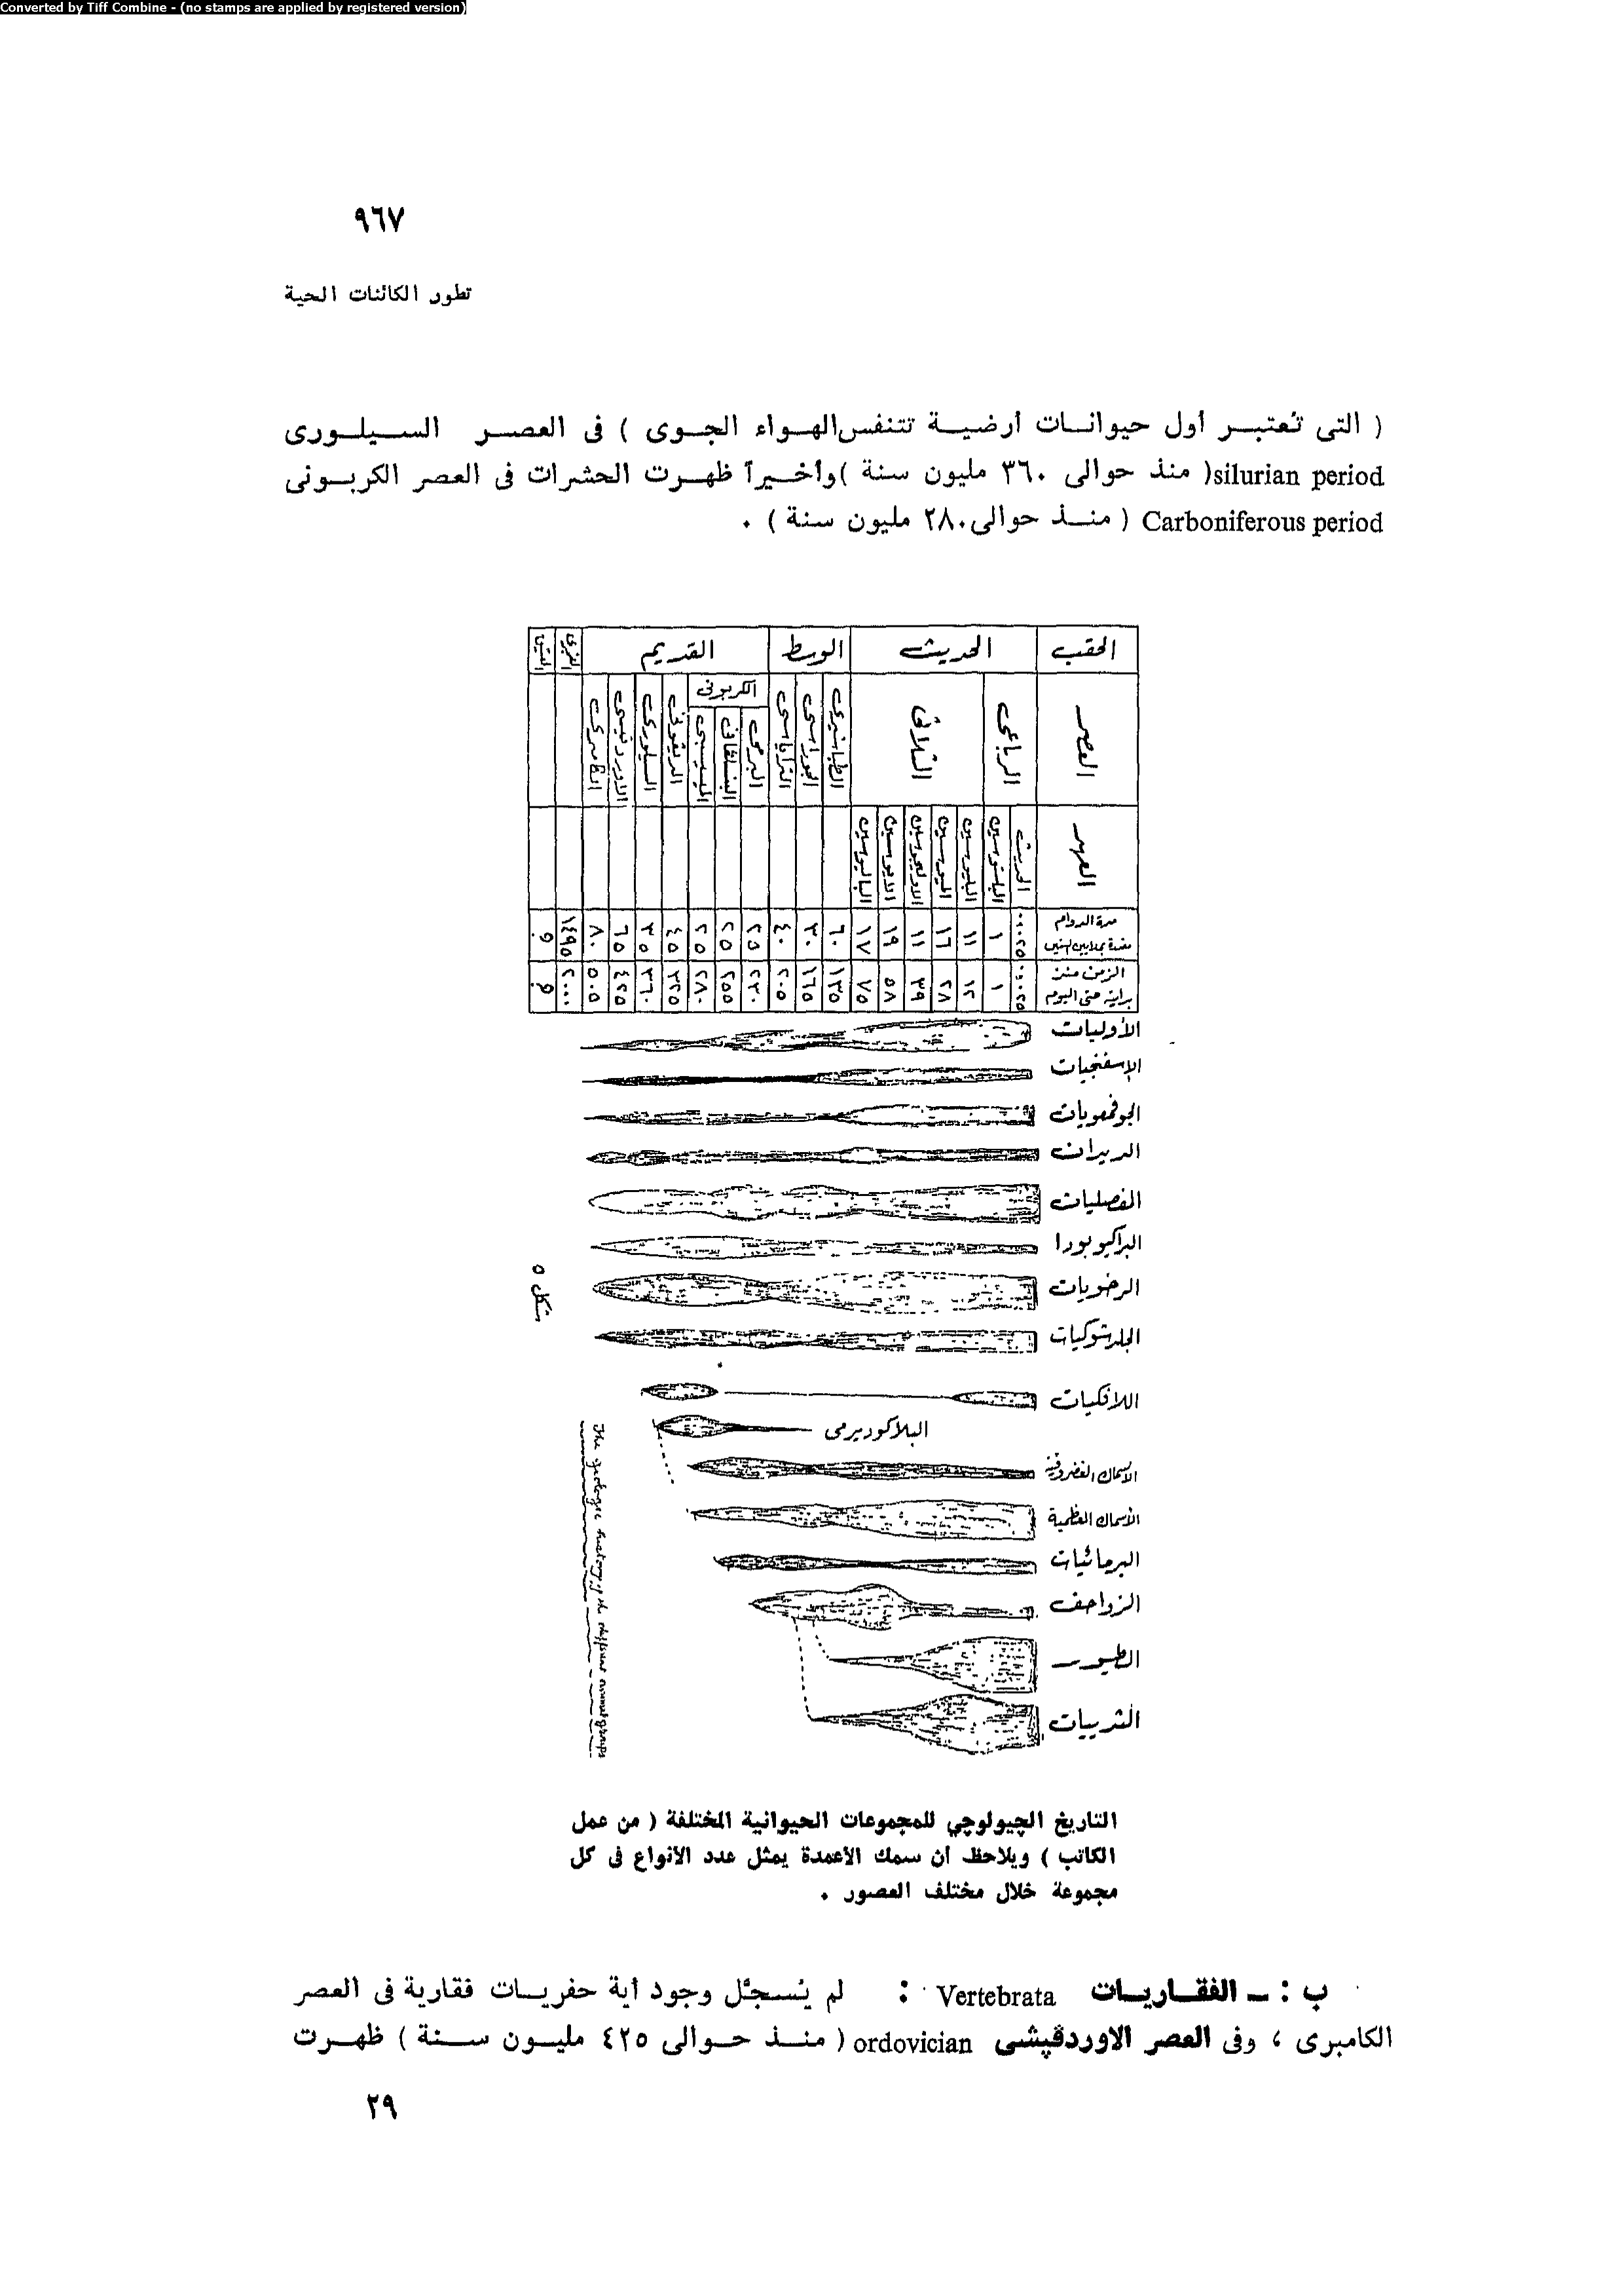 Converted by Tiff Combine - (no stamps are applied by registered version)
٩٦٧
تطور الكائنات الحية
( التى تعتبر أول حيوانات أرضية تتنفس الهواء الجوى ) فى العصر السيلورى
silurian period( منذ حوالى ٣٦٠ مليون سنة )وأخيراً ظهرت الحشرات فى العصر الكربونى
Carboniferous period ( منذ حوالى ٢٨٠ مليون سنة ) .
الحقب الحديث الوسط القديم
العصر الرباعى الثلاثى الطباشيرى الجوراسى الترياسى الكربونى البرمى البنسلفانى الميسيسبى الديفونى السيلورى الاوردفيسى الكامبرى
العهد الحديث البلستوسين البليوسين الميوسين الاوليجوسين الايوسين الباليوسين
مدة الدوام
مقدرة بملايين السنين ٠٠٠٢٥ ١ ١١ ١٦ ١١ ١٩ ١٧ ٦٠ ٣٠ ٤٠ ٢٥ ٢٥ ٢٥ ٤٥ ٣٥ ٦٥ ٨٠ ١٤٩٥ ؟
الزمن منذ
بدايته حتى اليوم ٠٠٠٢٥ ١ ١٢ ٢٨ ٣٩ ٥٨ ٧٥ ١٣٥ ١٦٥ ٢٠٥ ٢٣٠ ٢٥٥ ٢٨٠ ٣٢٥ ٣٦٠ ٤٢٥ ٥٠٥ ٢٠٠٠ ؟
الأوليات
الإسفنجيات
الجوفمعويات
الديدان
المفصليات
البراكيوبودا
الرخويات
الجلدشوكيات
اللافكيات
البلاكوديرمى
الأسماك الغضروفية
الأسماك العظمية
البرمائيات
الزواحف
الطيور
الثدييات
شكل ٥
The geologic history of the different animal groups
التاريخ الچيولوچي للمجموعات الحيوانية المختلفة ( من عمل
الكاتب ) ويلاحظ أن سمك الأعمدة يمثل عدد الأنواع فى كل
مجموعة خلال مختلف العصور .
ب : ـ الفقاريات Vertebrata : لم يُسجَّل وجود أية حفريات فقارية فى العصر
الكامبرى ، وفى العصر الاوردڤيشى ordovician ( منذ حوالى ٤٢٥ مليون سنة ) ظهرت
٢٩